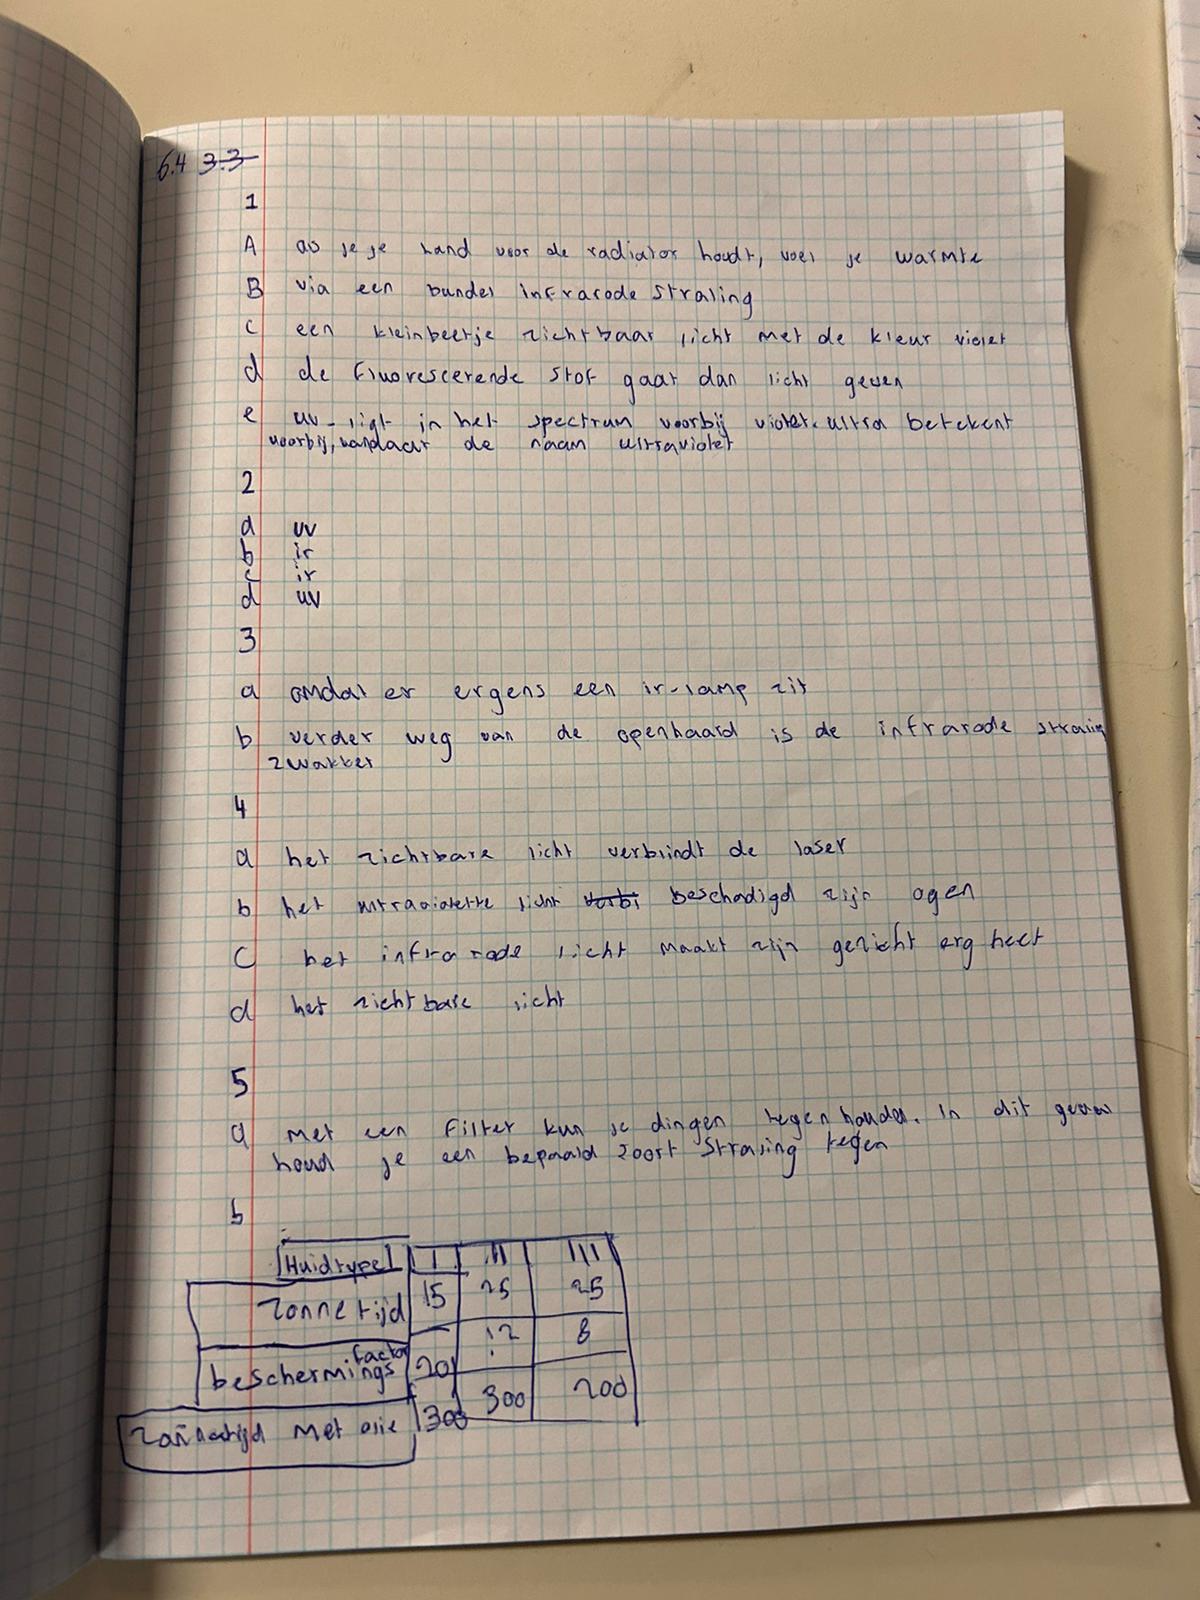 6.4 3.3
1
A als je je hand voor de radiator houdt, voel je warmte
B via een bundel infrarode straling
C een kleinbeetje zichtbaar licht met de kleur violet
d de fluorescerende stof gaat dan licht geven
e uv-ligt in het spectrum voorbij violet. ultra betekent
voorbij, vandaar de naam ultraviolet
2
a uv
b ir
c ir
d uv
3
a omdat er ergens een ir-lamp zit
b verder weg van de openhaard is de infrarode straling
zwakker
4
a het zichtbare licht verblindt de laser
b het ultraviolette licht beschadigd zijn ogen
C het infrarode licht maakt zijn gezicht erg heet
d het zichtbare licht
5
a met een filter kun je dingen tegenhouden. in dit geval
houd je een bepaald zoort straling tegen
b
Huidtype I II III
zonnetijd 15 25 25
beschermings factor 20 12 8
zonnetijd met olie 300 300 200